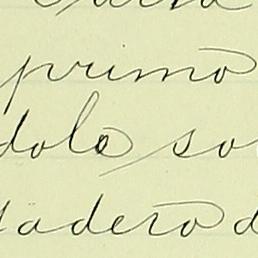 primo
dole so
tadero d